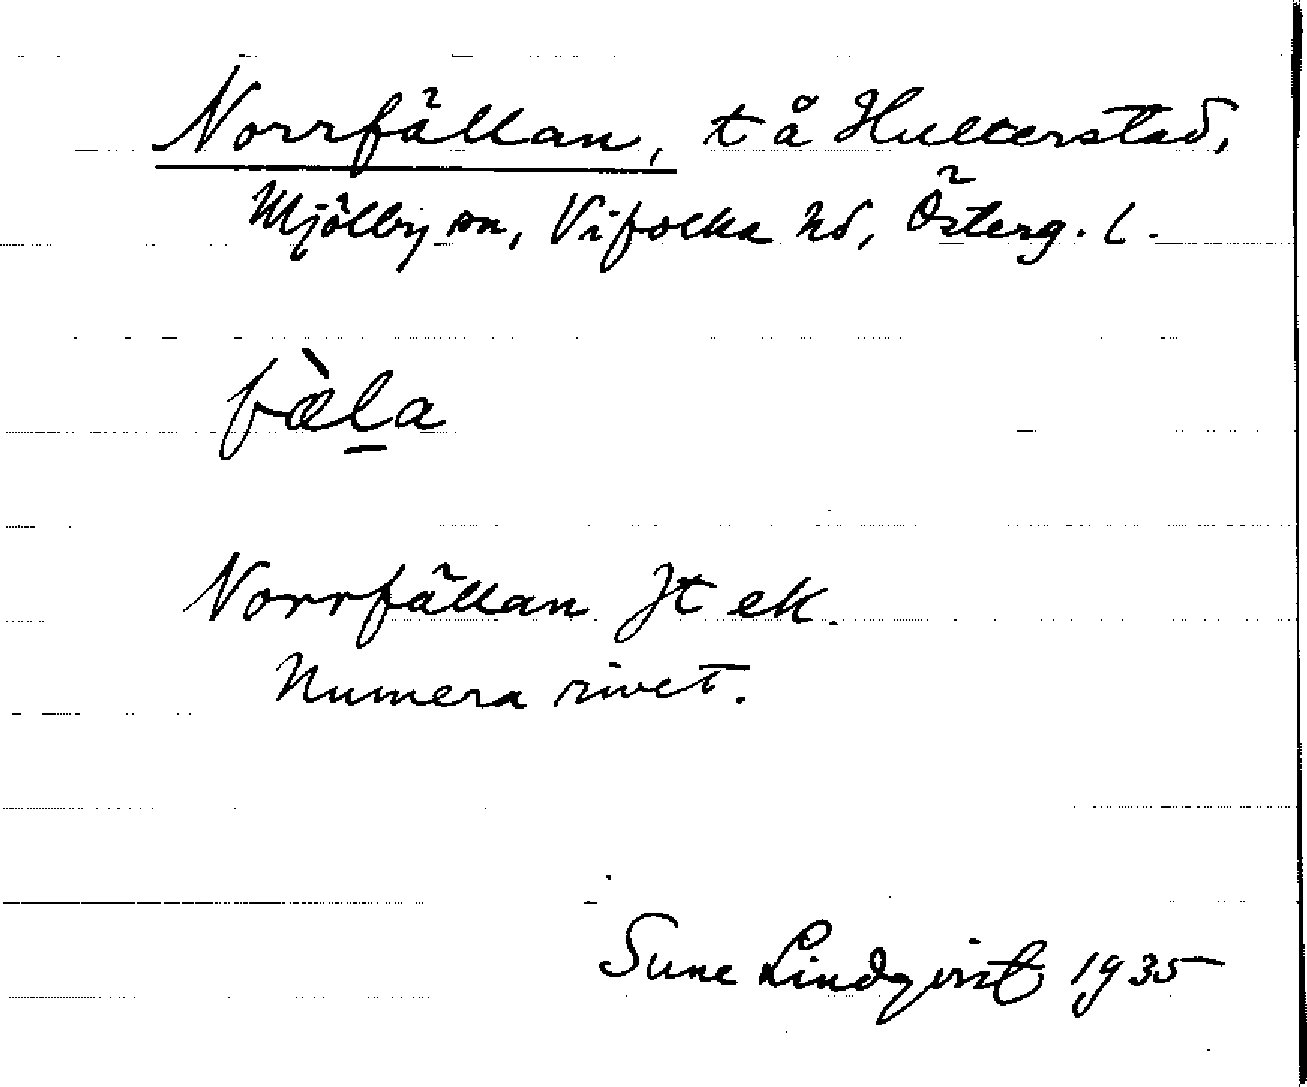 Norrfällan, t å Hulterstad,
Mjölby sn, Vifolka hd, Österg. l.
fæ̀l̲a
Norrfällan Jt ek.
Numera rivet.
Sune Lindqvist 1935